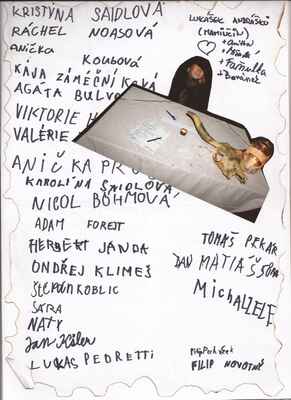 KRISTÝNA SAIDLOVÁ
RÁCHEL NOASOVÁ
ANIČKA
KOUBOVÁ
KÁJA ZÁMEČNÍKOVÁ
AGÁTA BULVO
VIKTORIE H
VALÉRIE
ANIČKA PRO
KAROLÍNA SAIDLOVÁ
NICOL BÖHMOVÁ
ADAM FOREJT
HERBERT JANDA
ONDŘEJ KLIMEŠ
ŠTĚPÁN KOBLIC
SÁRA
NATY
Jan Kisler
LUKAS PEDRETTI
LUKÁŠEK
+ Famulka
+ Beránek
TOMÁŠ PEKAR
JAN MATIÁŠ
MichALZELE
FILIP NOVOTNÝ